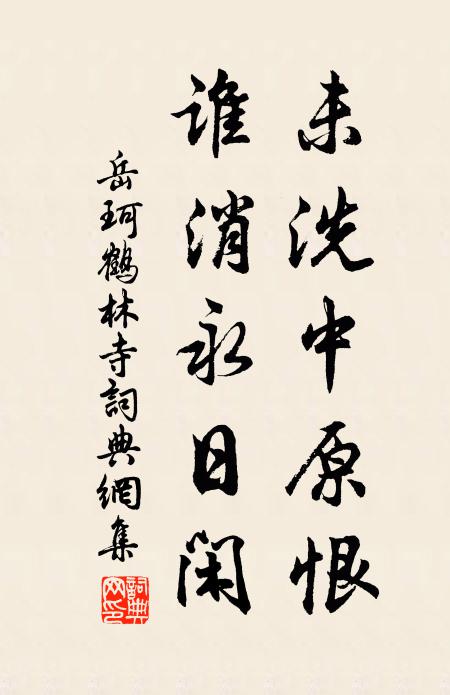 未洗中原恨
谁消永日闲
岳珂鹤林寺詞典網集
詞典網印